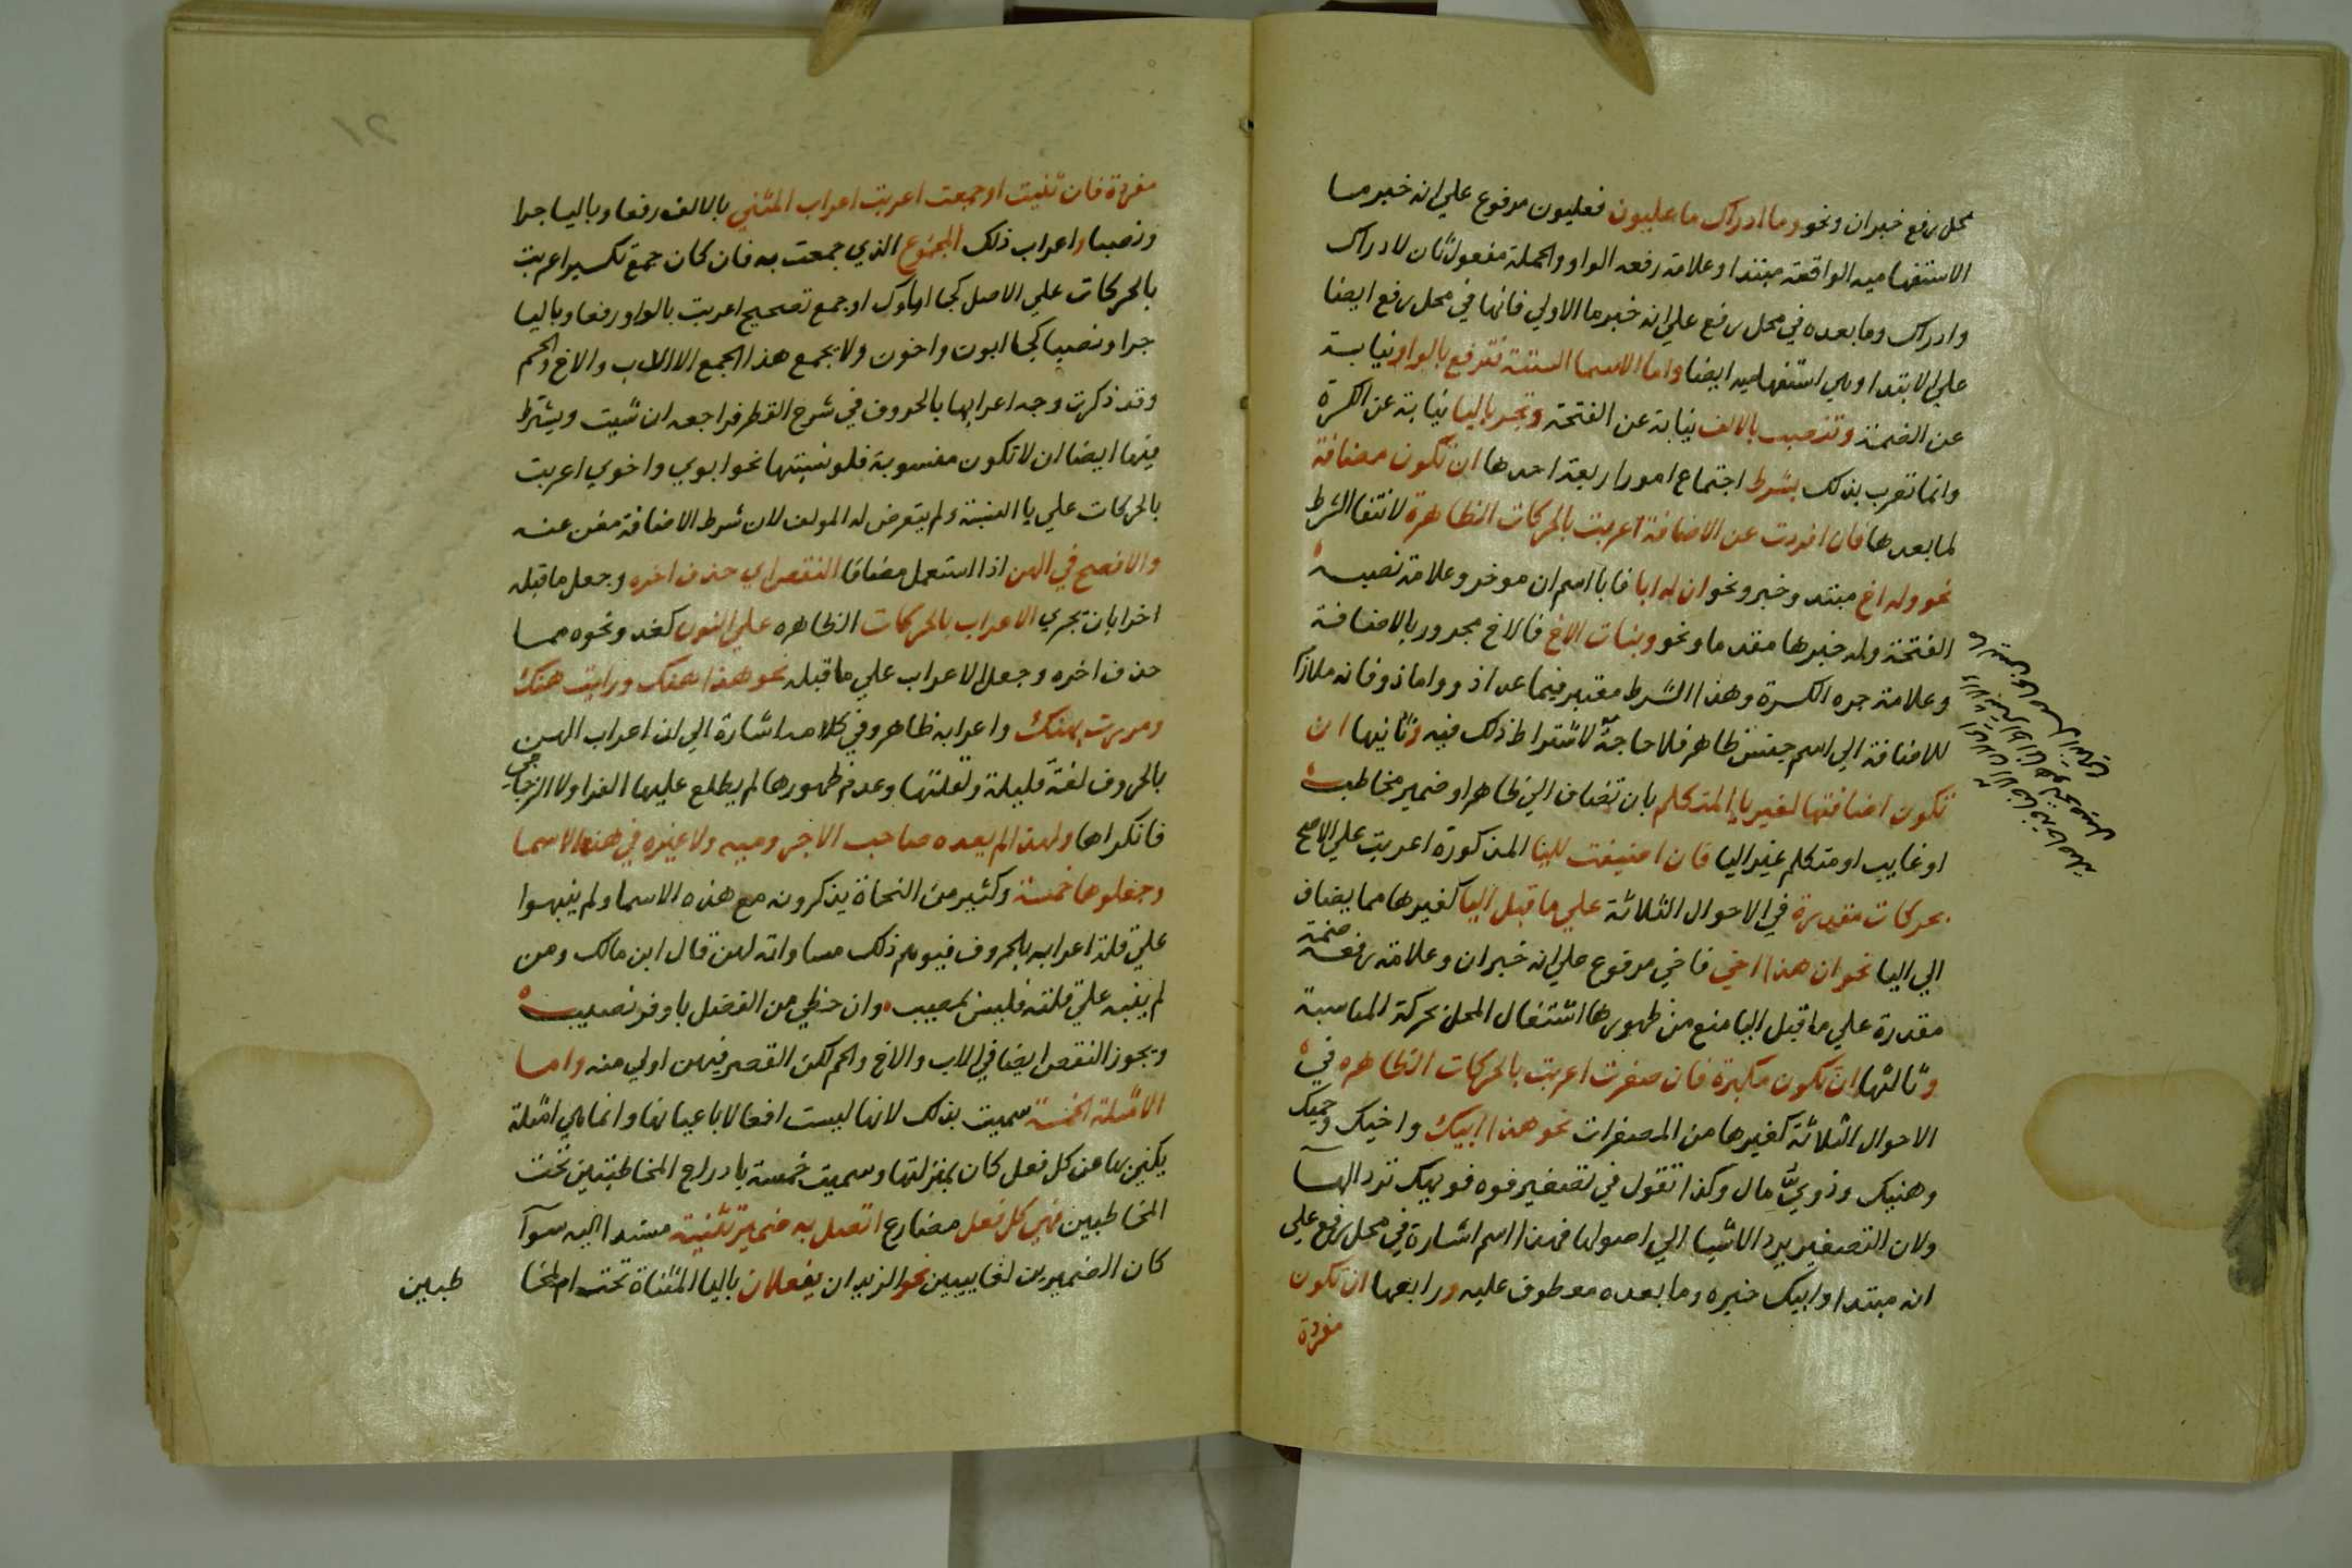 محل رفع خبر ان ونحو وما ادراك ما عليون فعليون مرفوع علي انه خبر ما
الاستفهاميه الواقعة مبتدا وعلامة رفعه الواو والجملة مفعول ثان لادراك
وادراك وما بعده في محل رفع علي انه خبر ما الاولي فانها في محل رفع ايضا
علي الابتدا وهي استفهاميه ايضا واما الاسما الستة فترفع بالواو نيابة
عن الضمة وتنصب بالالف نيابة عن الفتحة وتجر باليا نيابة عن الكسرة
وانما تعرب بذلك بشرط اجتماع امور اربعة احدها ان تكون مضافة
لما بعدها فان افردت عن الاضافة اعربت بالحركات الظاهرة لانتفا الشرط
نحو وله اخ مبتد وخبر ونحو ان له ابا فابا اسم ان موخر وعلامة نصبه
الفتحة وله خبرها مقدما ونحو وبنات الاخ فالاخ مجرور بالاضافة
وعلامة جره الكسرة وهذا الشرط معتبر فيما عدا ذو واما ذو فانه ملازم
للاضافة الي اسم جنس ظاهر فلا حاجة لاشتراط ذلك فيه وثانيها ان
تكون اضافتها لغير يا المتكلم بان تضاف الي ظاهر او ضمير مخاطب
او غايب او متكلم غير اليا فان اضيفت لليا المذكورة اعربت علي الاصح
بحركات مقدرة في الاحوال الثلاثة علي ما قبل اليا كغيرها مما يضاف
الي اليا نحو ان هذا اخي فاخي مرفوع علي انه خبر ان وعلامة رفعه ضمة
مقدرة علي ما قبل اليا منع من ظهورها اشتغال المحل بحركة المناسبة
وثالثها ان تكون مكبرة فان صغرت اعربت بالحركات الظاهره في
الاحوال الثلاثة كغيرها من المصغرات نحو هذا ابيك واخيك وحميك
وهنيك وذوي مال وكذا تقول في تصغير فوه فويهك ترد الها
ولان التصغير يرد الاشيا الي اصولها فهذا اسم اشارة في محل رفع علي
انه مبتدا وابيك خبره وما بعده معطوف عليه ورابعها ان تكون
مفردة
21
مفردة فان ثنيت او جمعت اعربت اعراب المثني بالالف رفعا وباليا جرا
ونصبا واعراب ذلك المجموع الذي جمعت به فان كان جمع تكسير اعربت
بالحركات علي الاصل كجا اباوك او جمع تصحيح اعربت بالواو رفعا وباليا
جرا ونصبا كجا ابون واخون ولا يجمع هذا الجمع الا الاب والاخ والحم
وقد ذكرت وجه اعرابها بالحروف في شرح القطر فراجعه ان شيت ويشترط
فيها ايضا ان لا تكون منسوبة فلو نسبتها نحو ابوي واخوي اعربت
بالحركات علي يا النسبة ولم يتعرض له المولف لان شرط الاضافة مغن عنه
والافصح في الهن اذا استعمل مضافا النقص اي حذف اخره وجعل ما قبله
اخرا بان تجري الاعراب بالحركات الظاهره علي النون كغد ونحوه مما
حذف اخره وجعل الاعراب علي ما قبله نحو هذا هنك ورايت هنك
ومررت بهنك واعرابه ظاهر وفي كلامه اشارة الي ان اعراب الهن
بالحروف لغة قليلة ولقلتها وعدم ظهورها لم يطلع عليها الفرا ولا الزجاجي
فانكراها ولهذا لم يعده صاحب الاجرومية ولا غيره في هذه الاسما
وجعلوها خمسة وكثير من النحاة يذكرونه مع هذه الاسما ولم ينبهوا
علي قلة اعرابه بالحروف فيوهم ذلك مساواته لهن قال ابن مالك ومن
لم ينبه علي قلته فليس بمصيب وان حظي من الفضل باوفر نصيب
ويجوز النقص ايضا في الاب والاخ والحم لكن القصر فيهن اولي منه واما
الامثلة الخمسة سميت بذلك لانها ليست افعالا باعيانها وانما هي امثلة
يكني بها عن كل فعل كان بمنزلتها وسميت خمسة بادراج المخاطبتين تحت
المخاطبين فهي كل فعل مضارع اتصل به ضمير تثنية مسندا اليه سوا
كان الضميرين لغايبين نحو الزيدان يفعلان باليا المثناة تحت ام لمخا
طبين